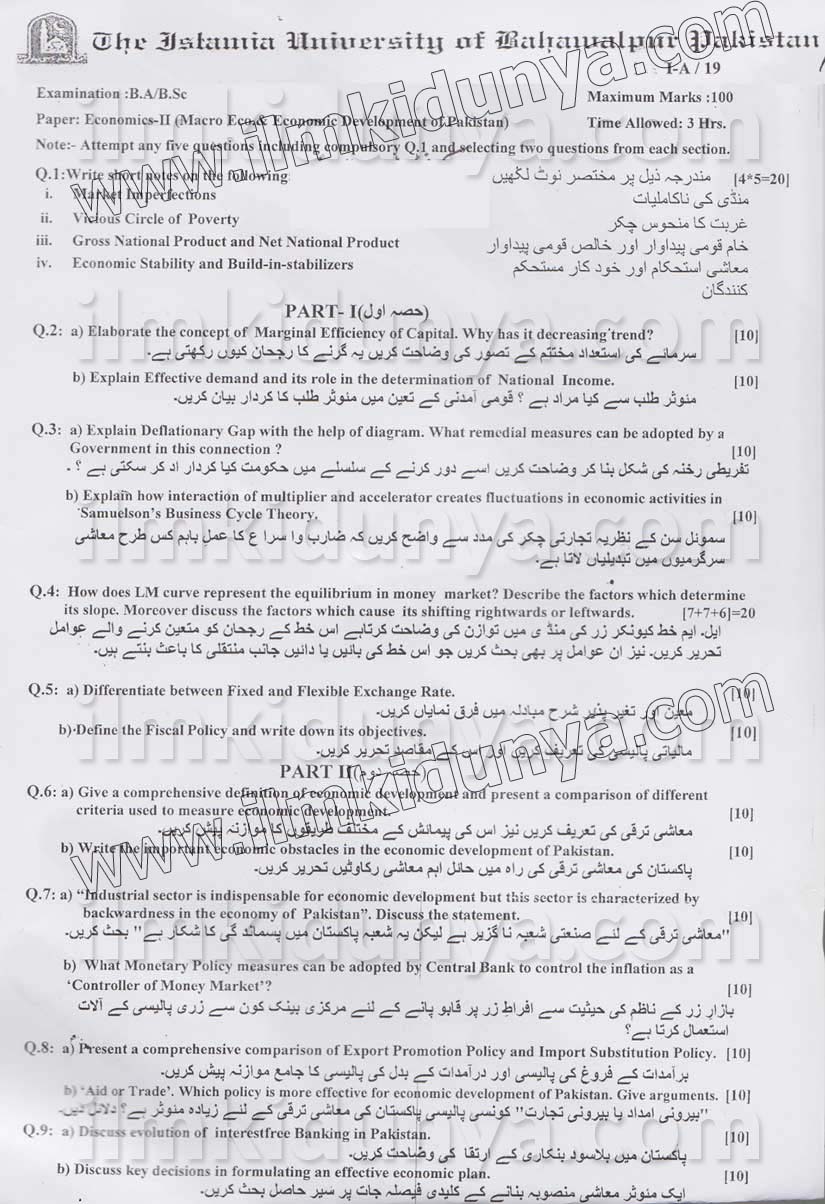 The Islamia University of Bahawalpur Pakistan
I-A / 19
Examination :B.A/B.Sc
Maximum Marks :100
Paper: Economics-II (Macro Eco,& Economic Development of Pakistan)
Time Allowed: 3 Hrs.
Note:- Attempt any five questions including compulsory Q.1 and selecting two questions from each section.
Q.1:Write short notes on the following
مندرجہ ذیل پر مختصر نوٹ لکھیں
[4*5=20]
i. Market Imperfections
منڈی کی ناکاملیات
ii. Vicious Circle of Poverty
غربت کا منحوس چکر
iii. Gross National Product and Net National Product
خام قومی پیداوار اور خالص قومی پیداوار
iv. Economic Stability and Build-in-stabilizers
معاشی استحکام اور خود کار مستحکم
کنندگان
PART- I(حصہ اول)
Q.2: a) Elaborate the concept of Marginal Efficiency of Capital. Why has it decreasing trend? [10]
سرمائے کی استعداد مختتم کے تصور کی وضاحت کریں یہ گرنے کا رجحان کیوں رکھتی ہے۔
b) Explain Effective demand and its role in the determination of National Income. [10]
منوثر طلب سے کیا مراد ہے ؟ قومی آمدنی کے تعین میں منوثر طلب کا کردار بیان کریں۔
Q.3: a) Explain Deflationary Gap with the help of diagram. What remedial measures can be adopted by a
Government in this connection ? [10]
تفریطی رخنہ کی شکل بنا کر وضاحت کریں اسے دور کرنے کے سلسلے میں حکومت کیا کردار اد کر سکتی ہے ؟ ۔
b) Explain how interaction of multiplier and accelerator creates fluctuations in economic activities in
Samuelson's Business Cycle Theory. [10]
سمونل سن کے نظریہ تجارتی چکر کی مدد سے واضح کریں کہ ضارب وا سرا ع کا عمل باہم کس طرح معاشی
سرگرمیوں میں تبدیلیاں لاتا ہے۔
Q.4: How does LM curve represent the equilibrium in money market? Describe the factors which determine
its slope. Moreover discuss the factors which cause its shifting rightwards or leftwards. [7+7+6]=20
ایل۔ ایم خط کیونکر زر کی منڈ ی میں توازن کی وضاحت کرتاہے اس خط کے رجحان کو متعین کرنے والے عوامل
تحریر کریں۔ نیز ان عوامل پر بھی بحث کریں جو اس خط کی بائیں یا دائیں جانب منتقلی کا باعث بنتے ہیں۔
Q.5: a) Differentiate between Fixed and Flexible Exchange Rate. [10]
معین اور تغیر پذیر شرح مبادلہ میں فرق نمایاں کریں۔
b) Define the Fiscal Policy and write down its objectives. [10]
مالیاتی پالیسی کی تعریف کریں اور اس کے مقاصد تحریر کریں۔
PART II(حصہ دوم)
Q.6: a) Give a comprehensive definition of economic development and present a comparison of different
criteria used to measure economic development. [10]
معاشی ترقی کی تعریف کریں نیز اس کی پیمائش کے مختلف طریقوں کا موازنہ پیش کریں۔
b) Write the important economic obstacles in the economic development of Pakistan. [10]
پاکستان کی معاشی ترقی کی راہ میں حائل اہم معاشی رکاوٹیں تحریر کریں۔
Q.7: a) “Industrial sector is indispensable for economic development but this sector is characterized by
backwardness in the economy of Pakistan”. Discuss the statement. [10]
"معاشی ترقی کے لئے صنعتی شعبہ نا گزیر ہے لیکن یہ شعبہ پاکستان میں پسماند گی کا شکار ہے" بحث کریں۔
b) What Monetary Policy measures can be adopted by Central Bank to control the inflation as a
‘Controller of Money Market’? [10]
بازار زر کے ناظم کی حیثیت سے افراط زر پر قابو پانے کے لئے مرکزی بینک کون سے زری پالیسی کے آلات
استعمال کرتا ہے؟
Q.8: a) Present a comprehensive comparison of Export Promotion Policy and Import Substitution Policy. [10]
برآمدات کے فروغ کی پالیسی اور درآمدات کے بدل کی پالیسی کا جامع موازنہ پیش کریں۔
b) ‘Aid or Trade’. Which policy is more effective for economic development of Pakistan. Give arguments. [10]
"بیرونی امداد یا بیرونی تجارت" کونسی پالیسی پاکستان کی معاشی ترقی کے لئے زیادہ منوثر ہے؟ دلائل دیں۔
Q.9: a) Discuss evolution of interestfree Banking in Pakistan. [10]
پاکستان میں بلاسود بنکاری کے ارتقا کی وضاحت کریں۔
b) Discuss key decisions in formulating an effective economic plan. [10]
ایک منوثر معاشی منصوبہ بنانے کے کلیدی فیصلہ جات پر سیر حاصل بحث کریں۔
www.ilmkidunya.com
www.ilmkidunya.com
ilmkidunya.com
ilmkidunya.com
ilmkidunya.com
ilmkidunya.com
ilmkidunya.com
ilmkidunya.com